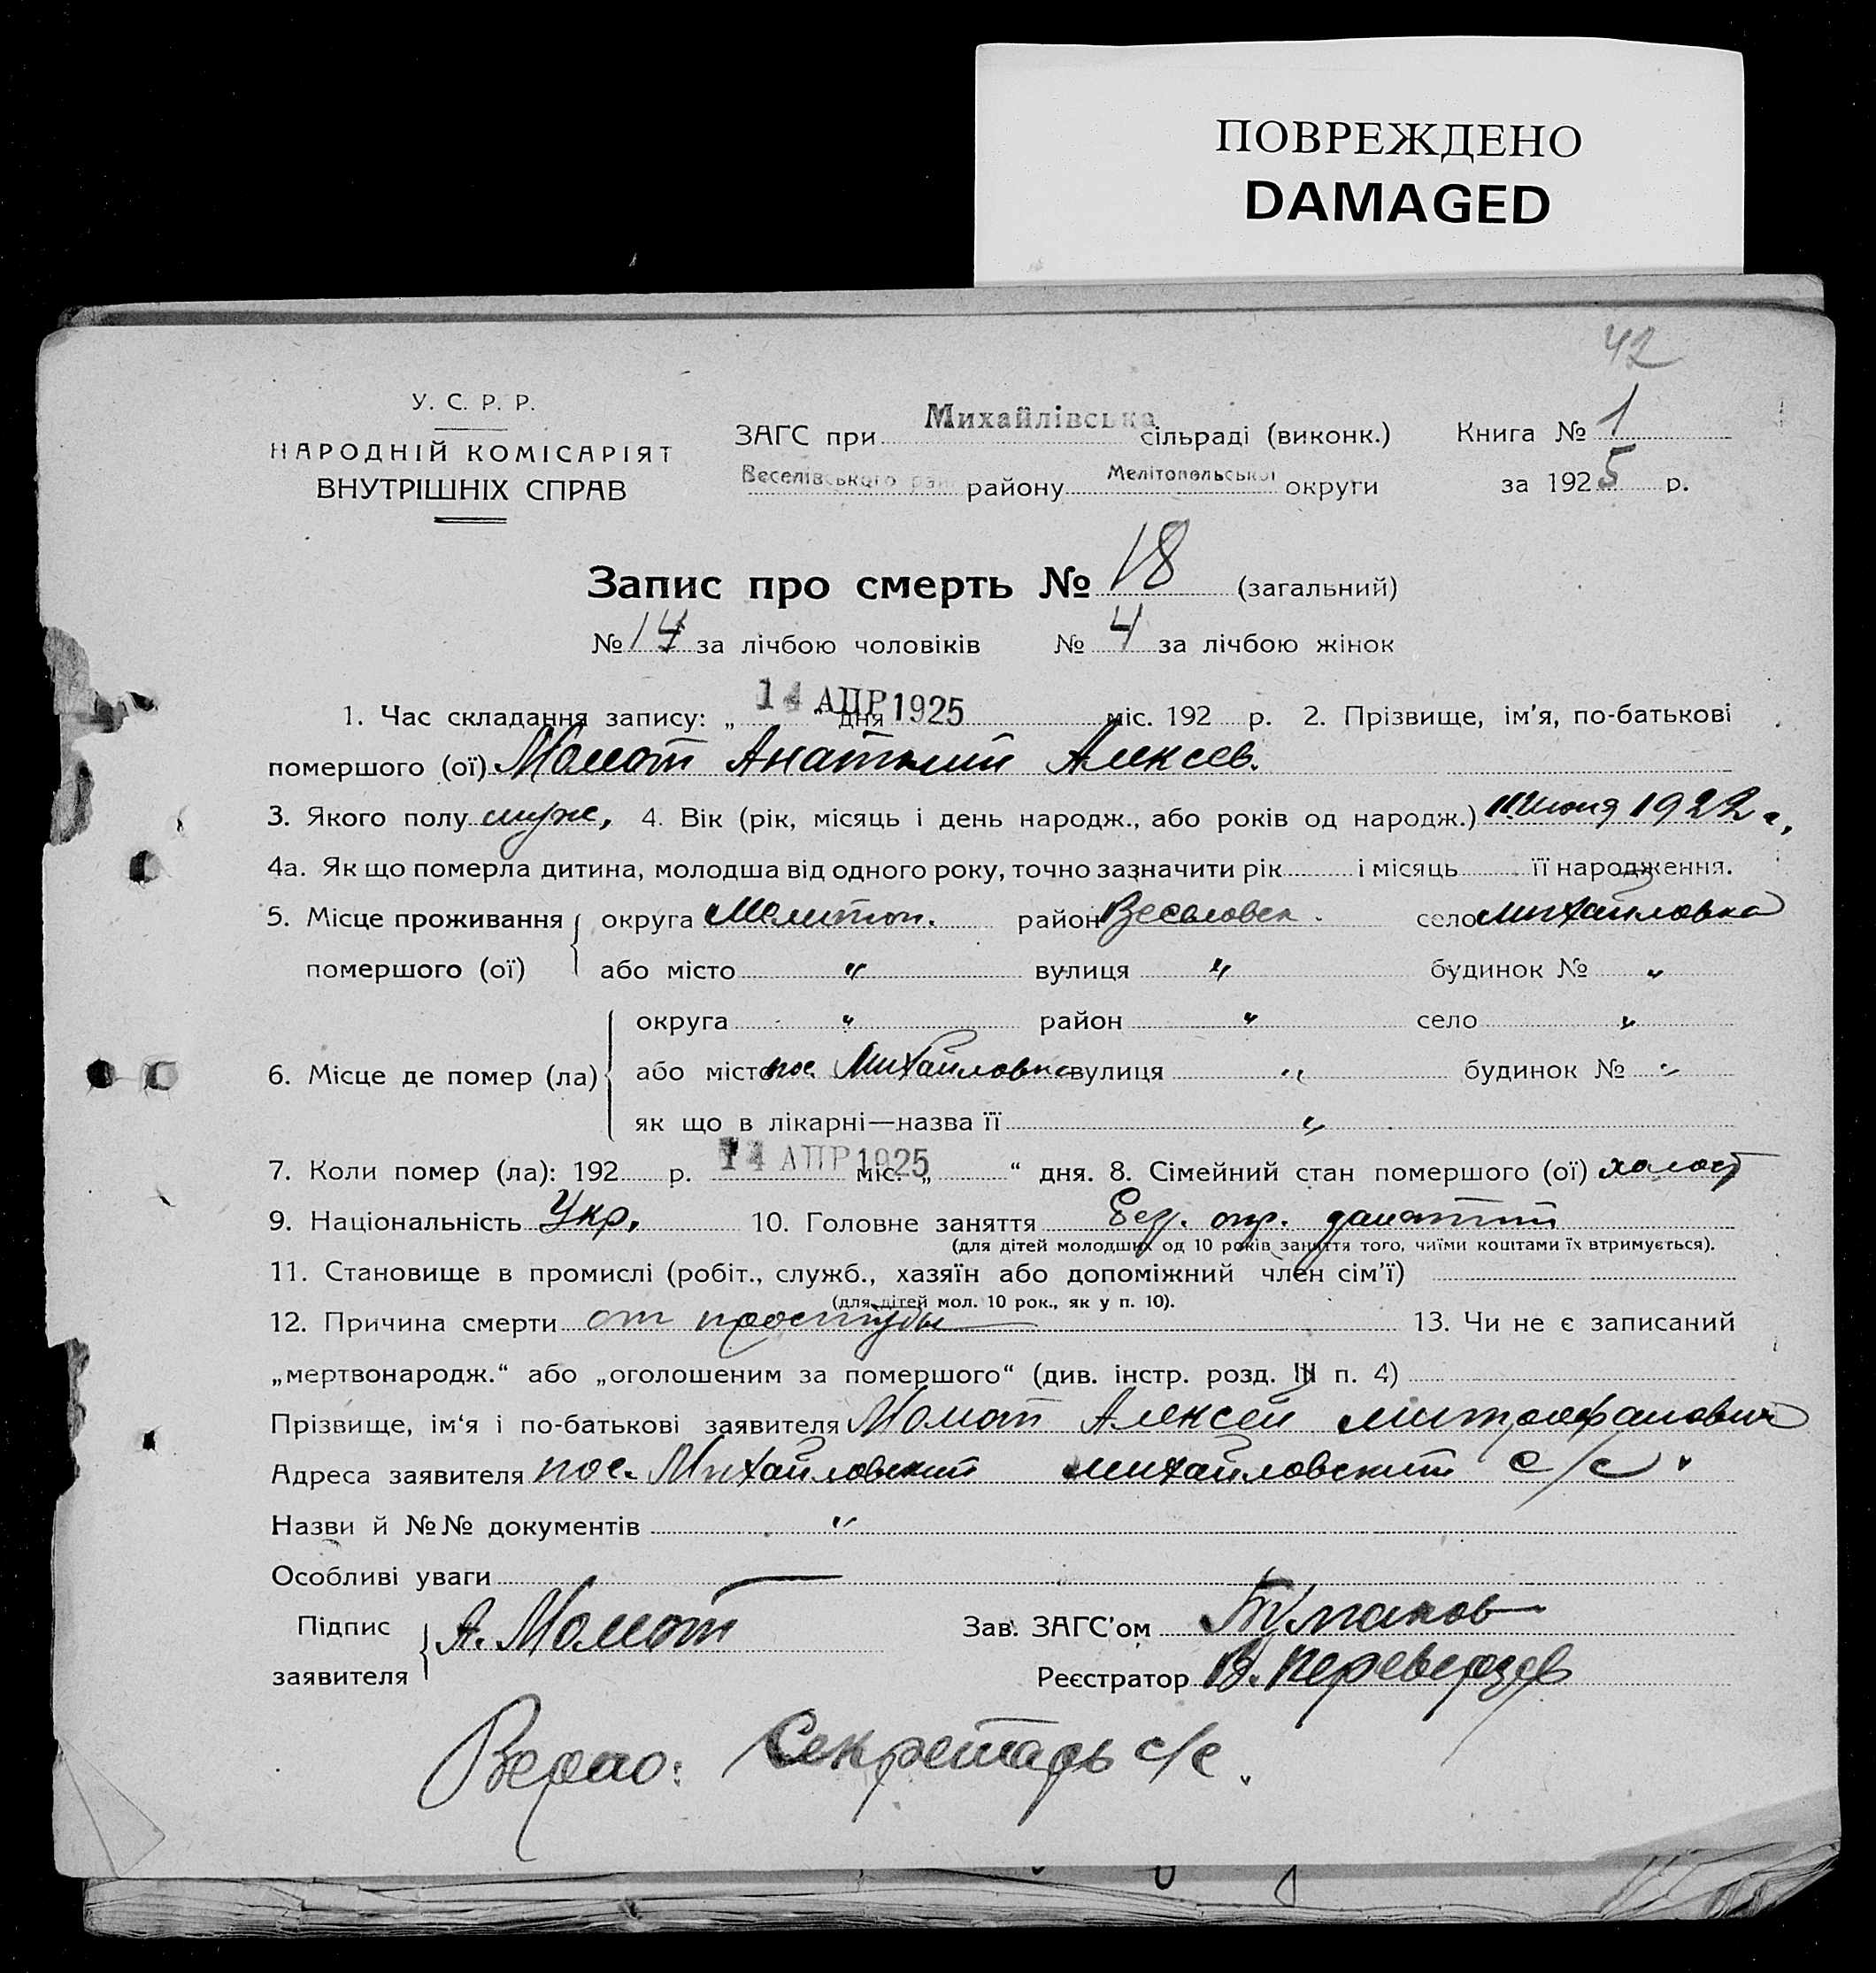 ПОВРЕЖДЕНО
DAMAGED
42
У. С. Р. Р.
НАРОДНІЙ КОМІСАРІЯТ
ВНУТРІШНІХ СПРАВ
ЗАГС при Михайлівська сільраді (виконк.) Книга № 1
Веселівського району Мелітопольської округи за 1925 р.
Запис про смерть № 18 (загальний)
№ 14 за лічбою чоловіків № 4 за лічбою жінок
1. Час складання запису: „ 14 АПР 1925 дня міс. 192 р. 2. Прізвище, ім'я, по-батькові
помершого (ої) Момот Анатолий Алексев.
3. Якого полу муж, 4. Вік (рік, місяць і день народж., або років од народж.) 11 Июня 1922 г.
4а. Як що померла дитина, молодша від одного року, точно зазначити рік і місяць її народження.
5. Місце проживання округа Мелитоп. район Веселовск. село Михайловка
помершого (ої) або місто " вулиця " будинок № "
округа " район " село "
6. Місце де помер (ла) або місто пос. Михайловка вулиця " будинок № "
як що в лікарні—назва її "
7. Коли помер (ла): 192 р. 14 АПР 1925 міс. „ “ дня. 8. Сімейний стан помершого (ої) холост
9. Національність Укр. 10. Головне заняття
(для дітей молодших од 10 років заняття того, чиїми коштами їх втримується).
11. Становище в промислі (робіт., служб., хазяїн або допоміжний член сім'ї)
(для дітей мол. 10 рок., як у п. 10).
12. Причина смерти от простуды 13. Чи не є записаний
„мертвонародж.“ або „оголошеним за помершого“ (див. інстр. розд. III п. 4)
Прізвище, ім‘я і по-батькові заявителя Момот Алексей Митрофанович
Адреса заявителя пос. Михайловский Михайловский с/с.
Назви й №№ документів "
Особливі уваги
Підпис заявителя А. Момот Зав. ЗАГС'ом
Реєстратор В. Переверзев
Верно: Секретарь с/с.